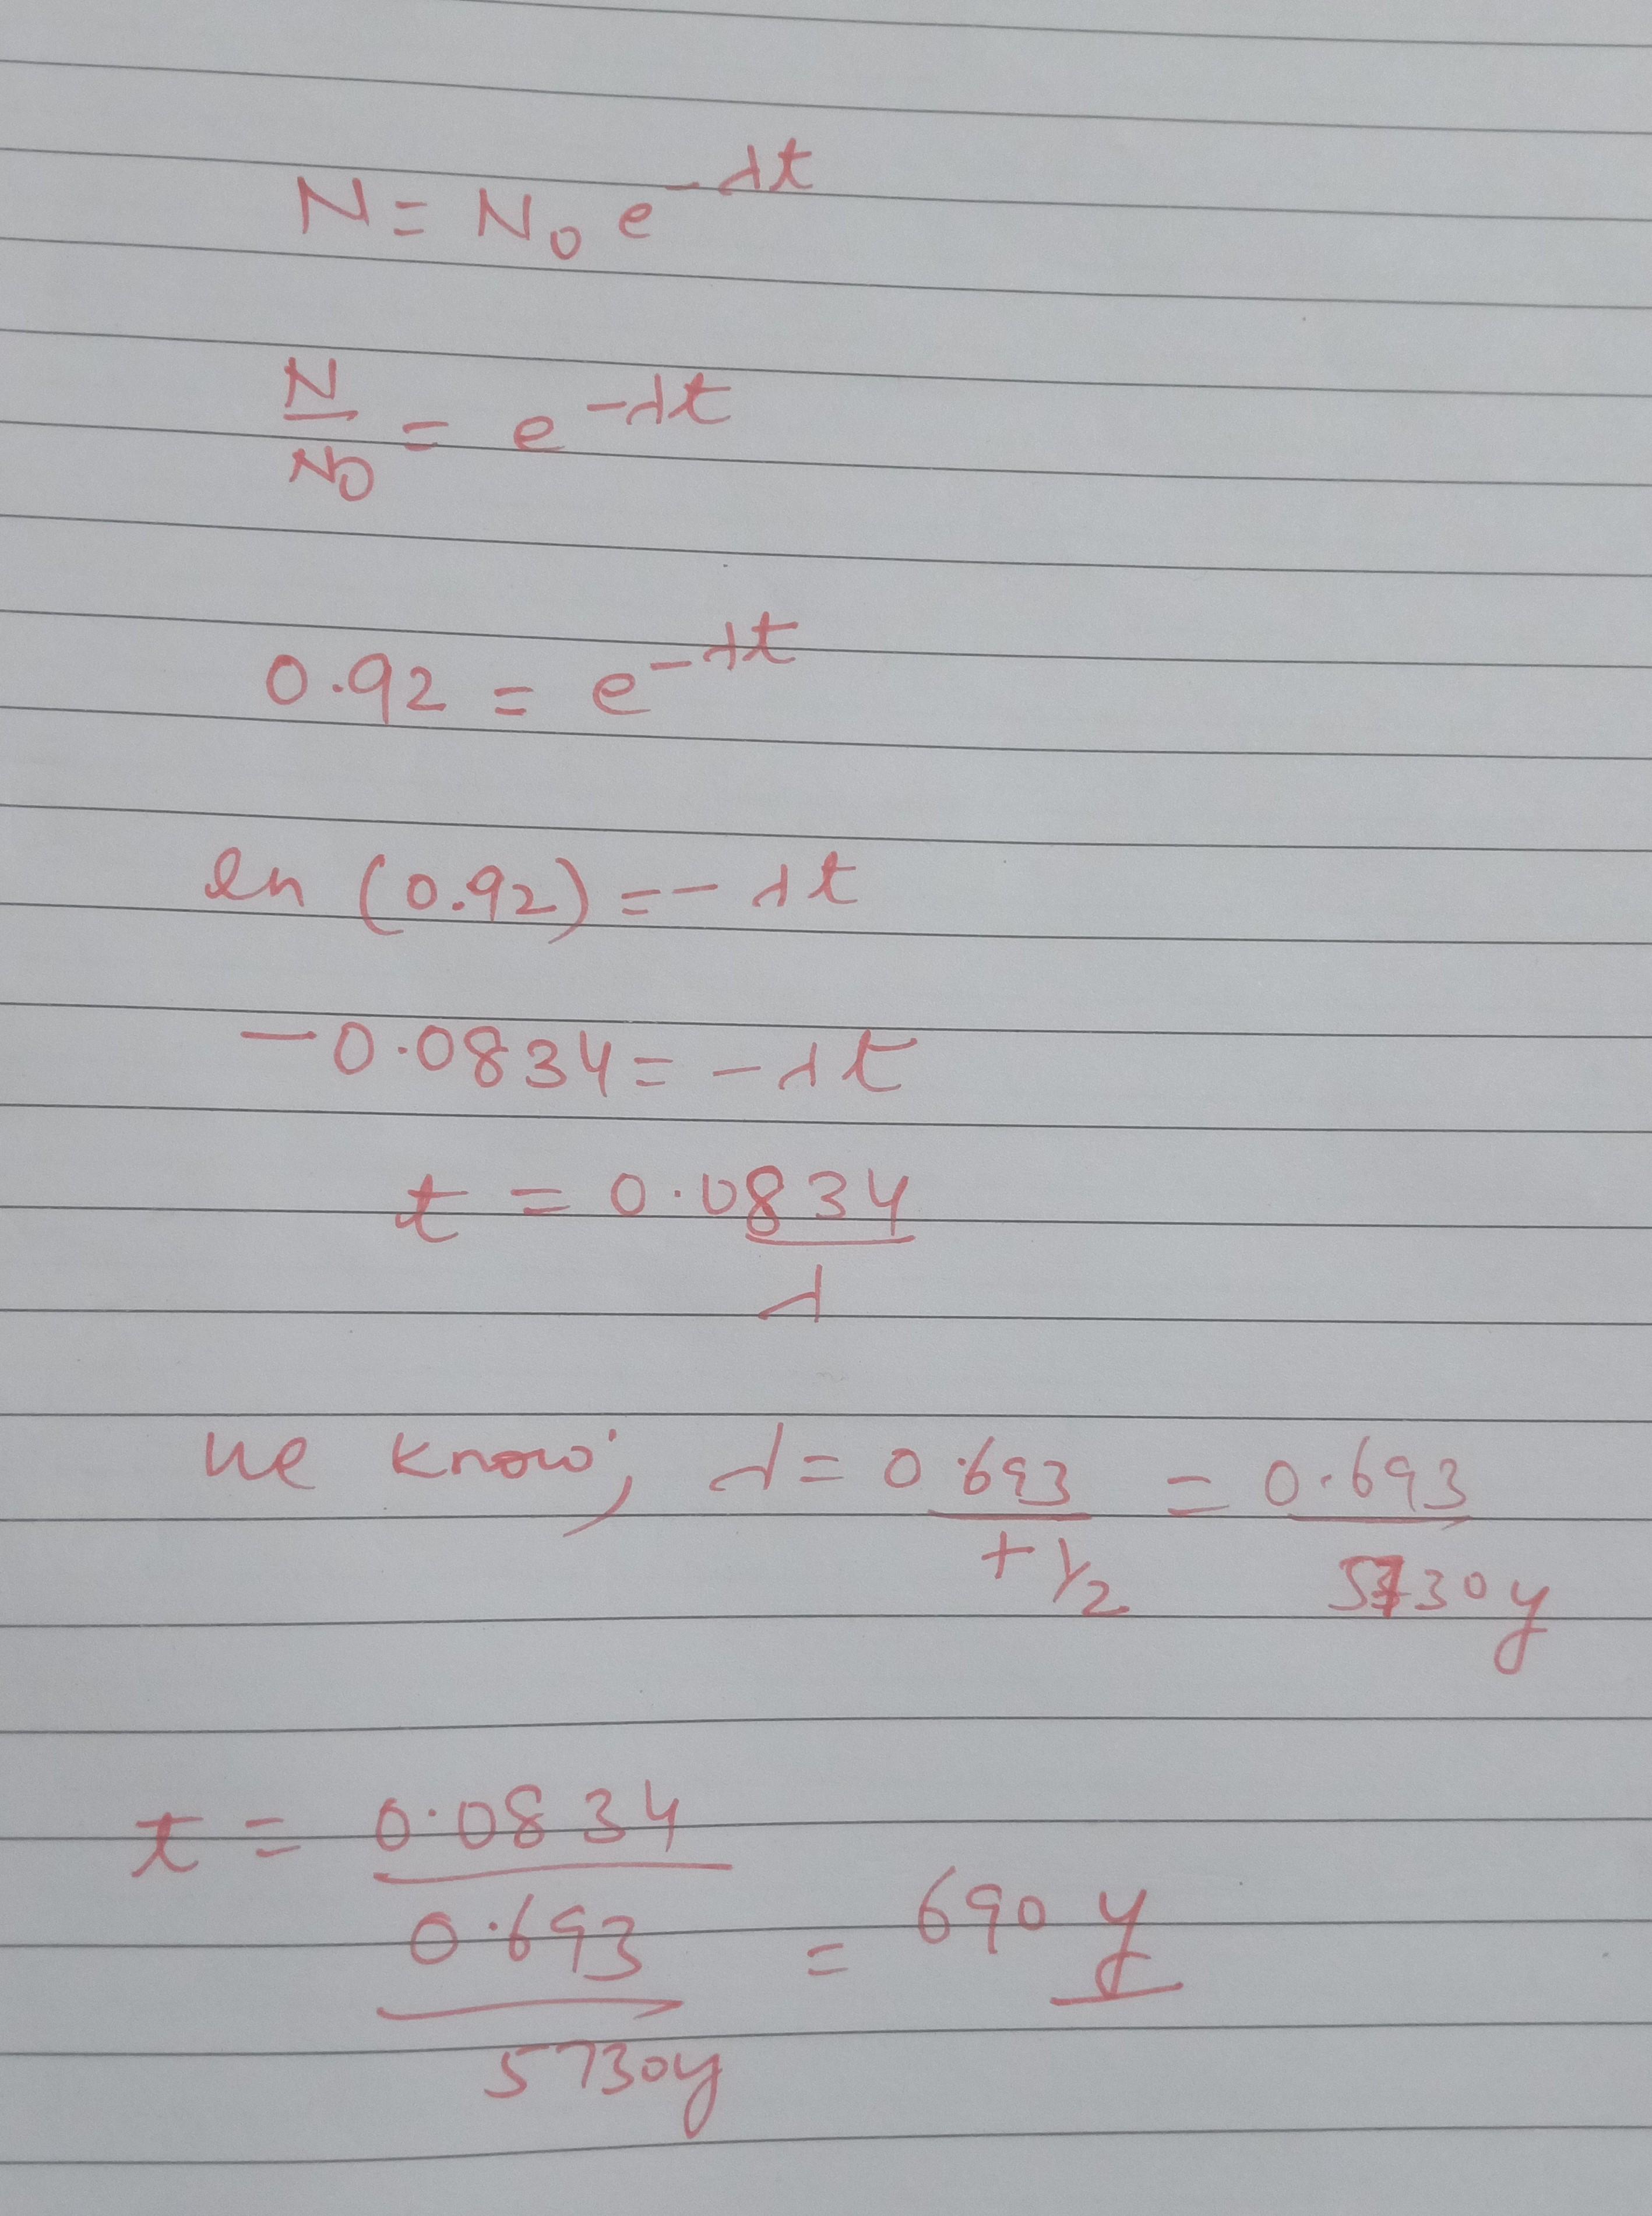 N = N₀ e^{-λt}
N/N₀ = e^{-λt}
0.92 = e^{-λt}
ln (0.92) = -λt
-0.0834 = -λt
t = 0.0834/λ
we know; λ = 0.693/t½ = 0.693/5730y
t = 0.0834/(0.693/5730y) = 690 y